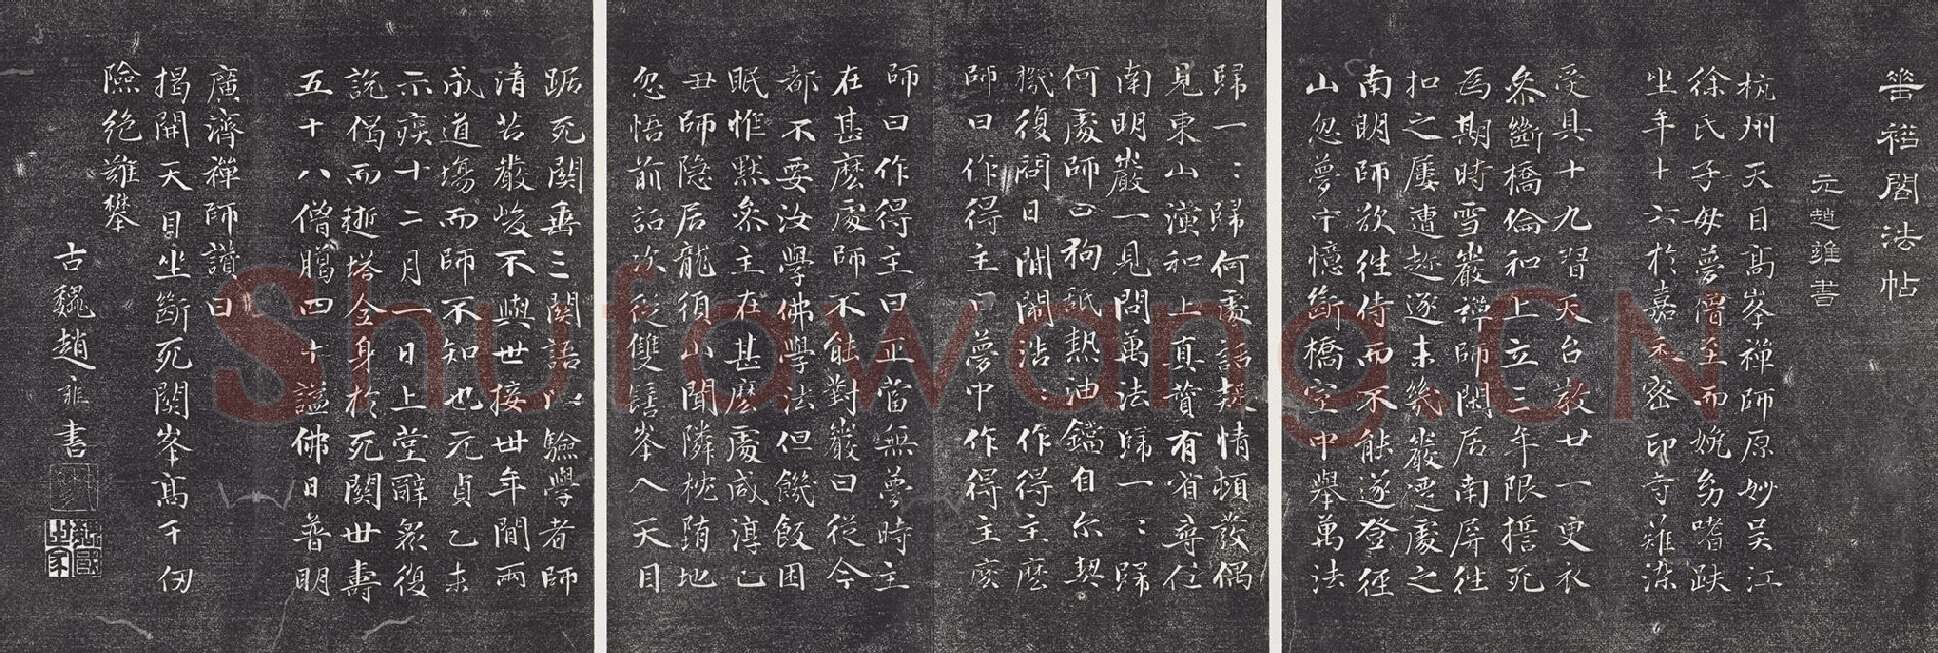 耑裕閣法帖
元趙雍書
杭州天目高峯禪師原妙吴江
徐氏子母夢僧至而娩幼嗜趺
坐年十六於嘉禾密印寺薙染
受具十九習天台教廿一更衣
叅斷橋倫和上立三年限誓死
為期時雪巖禪師閑居南屏往
扣之屢遭逐未幾巖遷處之
南明師欲往侍而不能遂登徑
山忽夢中憶斷橋室中舉萬法
歸一：歸何處話疑情頓發偶
見東山演和上真賛有省尋住
南明巖一見問萬法歸一：歸
何處師云狗舐熱油鐺自尔契
機復問日間鬧浩：作得主麽
師曰作得主曰夢中作得主麽
師曰作得主曰正當無夢時主
在甚麽處師不能對巖曰從今
都不要汝學佛學法但饑飯困
眠惟默叅主在甚麽處咸淳乙
丑師隐居龍須山聞隣枕堕地
忽悟前話次從雙髻峯入天目
踞死関垂三関語以驗學者師
清苦嚴峻不與世接卅年間兩
成道場而師不知也元貞乙未
示疾十二月一日上堂辭衆復
說偈而逝塔全身於死関世壽
五十八僧臈四十謚佛日普明
廣濟禪師讃曰
揭開天目坐斷死関峯高千仞
險絶難攀
古魏趙雍書
Shufawang.CN